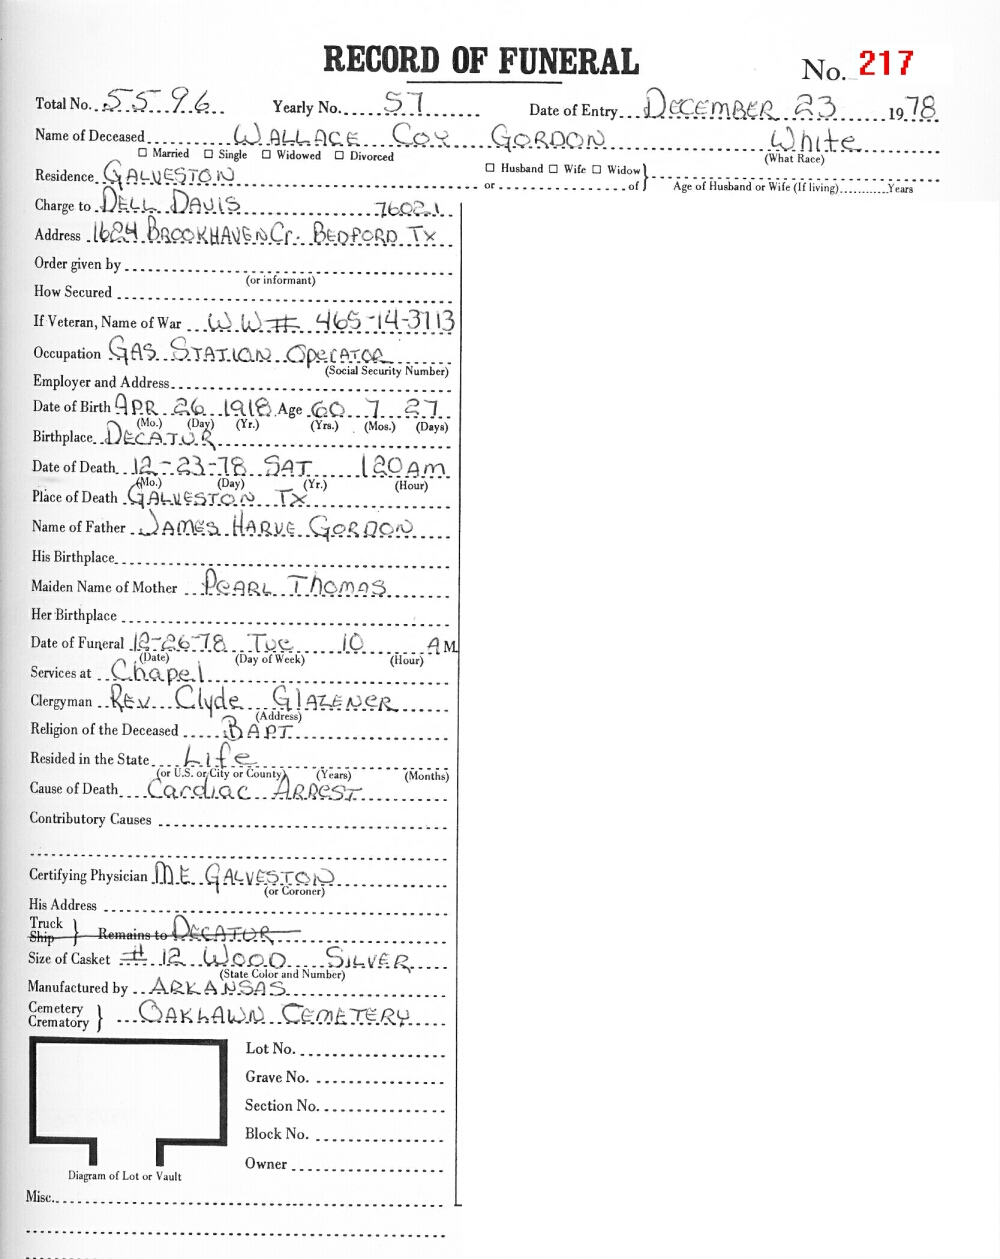 RECORD OF FUNERAL
No. 217
Total No. 5596 Yearly No. 57 Date of Entry DECEMBER 23 1978
Name of Deceased WALLACE COY GORDON White
☐ Married ☐ Single ☐ Widowed ☐ Divorced (What Race)
Residence GALVESTON ☐ Husband ☐ Wife ☐ Widow } or of Age of Husband or Wife (If living) Years
Charge to DELL DAVIS 76021
Address 1624 BROOKHAVEN Cr. BEDFORD TX
Order given by
(or informant)
How Secured
If Veteran, Name of War WW II 465-14-3713
Occupation GAS STATION OPERATOR
(Social Security Number)
Employer and Address
Date of Birth APR 26 1918 Age 60 7 27
(Mo.) (Day) (Yr.) (Yrs.) (Mos.) (Days)
Birthplace DECATUR
Date of Death 12-23-78 SAT 120 Am
(Mo.) (Day) (Yr.) (Hour)
Place of Death GALVESTON TX
Name of Father JAMES HARVE GORDON
His Birthplace
Maiden Name of Mother PEARL THOMAS
Her Birthplace
Date of Funeral 12-26-78 TUE 10 A M.
(Date) (Day of Week) (Hour)
Services at Chapel
Clergyman REV. Clyde GLAZENER
(Address)
Religion of the Deceased BAPT
Resided in the State Life
(or U.S. or City or County) (Years) (Months)
Cause of Death Cardiac ARREST
Contributory Causes
Certifying Physician M.E. GALVESTON
(or Coroner)
His Address
Truck
Ship } Remains to DECATUR
Size of Casket # 12 WOOD SILVER
(State Color and Number)
Manufactured by ARKANSAS
Cemetery
Crematory } OAKLAWN CEMETERY
Lot No.
Grave No.
Section No.
Block No.
Owner
Diagram of Lot or Vault
Misc.